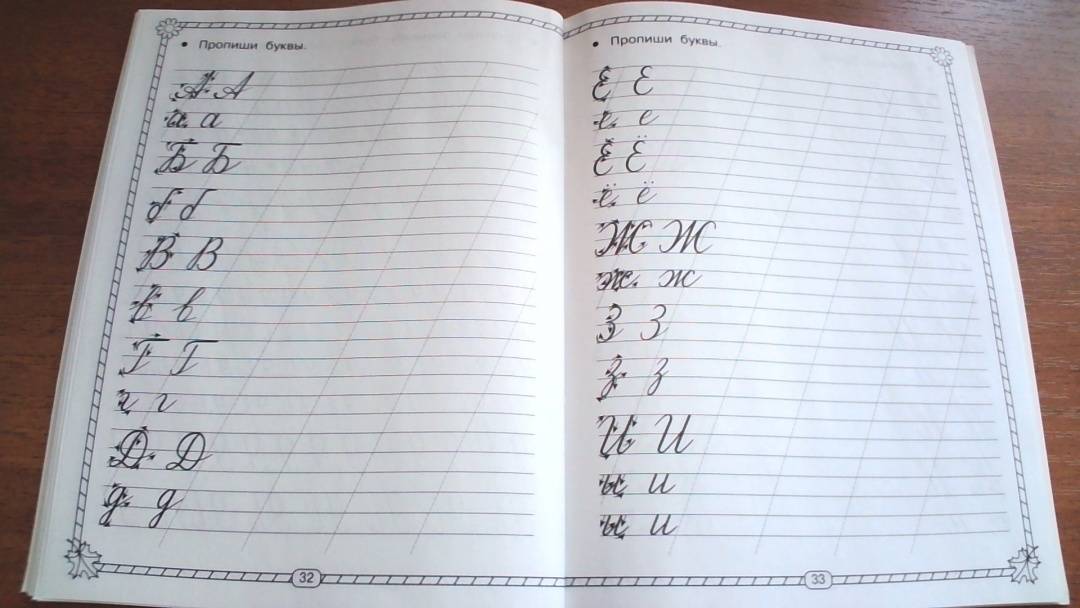 • Пропиши буквы.
А А
а а
Б Б
б б
В В
в в
Г Г
г г
Д Д
д д
32
• Пропиши буквы.
Е Е
е е
Ё Ё
ё ё
Ж Ж
ж ж
З З
з з
И И
и и
и и
33